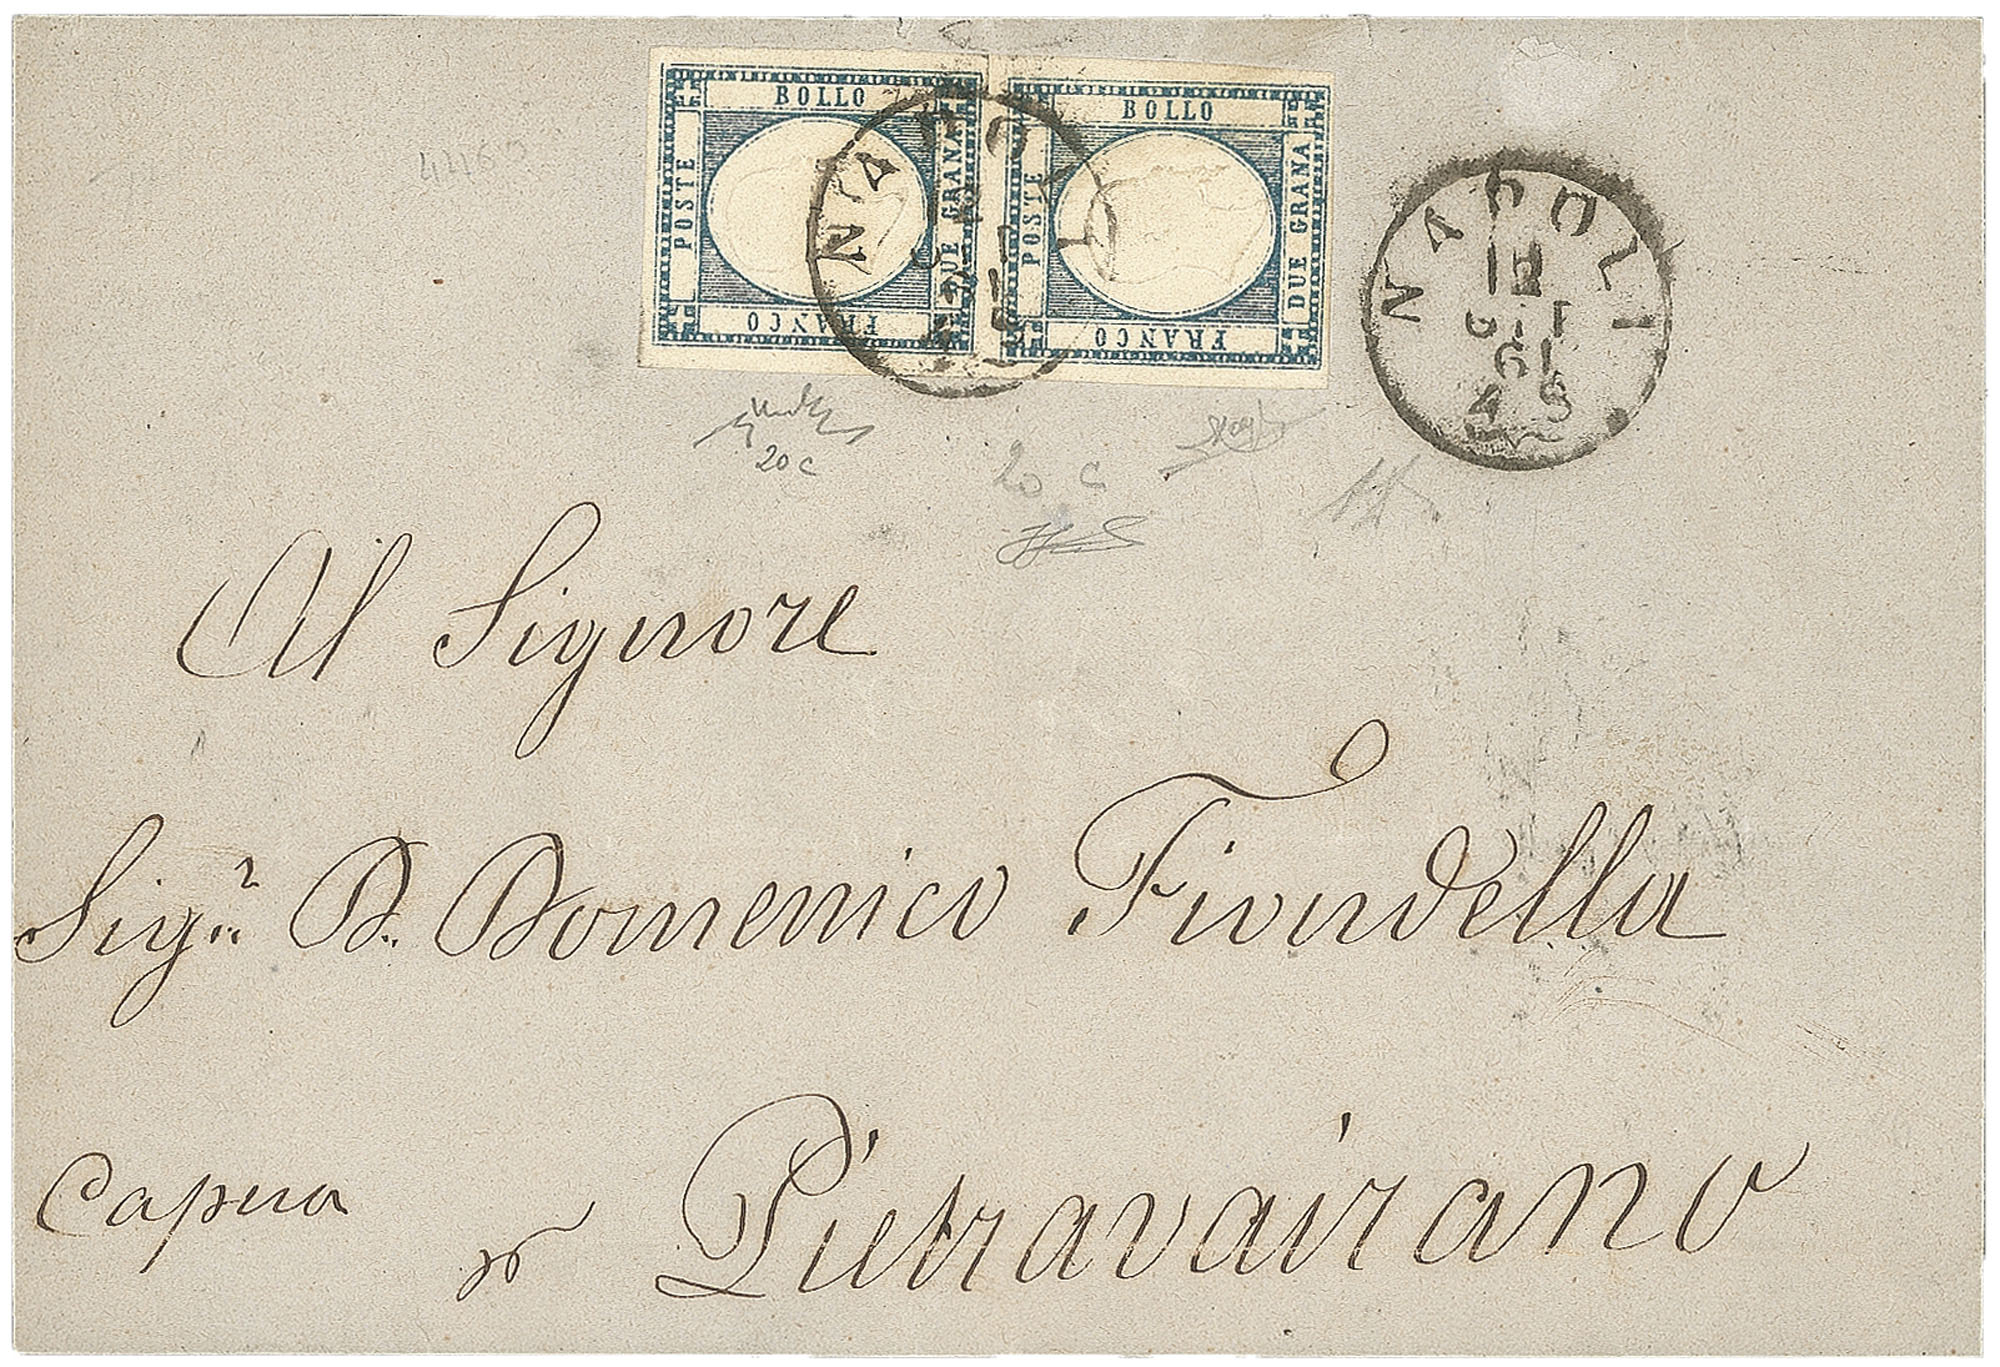 BOLLO
POSTE
DUE GRANA
FRANCO
BOLLO
POSTE
DUE GRANA
FRANCO
NAPOLI
NAPOLI
12
61
20 c
20 c
Al Signore
Sigr. D. Domenico Fiondella
Capua
Pietravairano